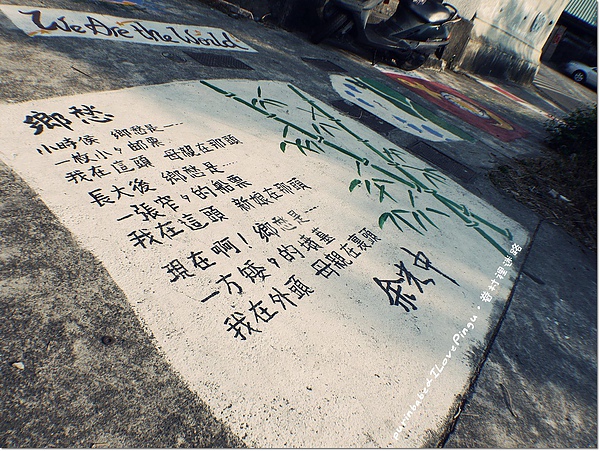 We Are the World
鄉愁
小時候 鄉愁是....
一枚小々郵票
我在這頭 母親在那頭
長大後 鄉愁是...
一張窄々的船票
我在這頭 新娘在那頭
現在啊! 鄉愁是...
一方矮々的墳墓
我在外頭 母親在裏頭
余光中
purinbabe♥ILovePingu。眷村裡迷路